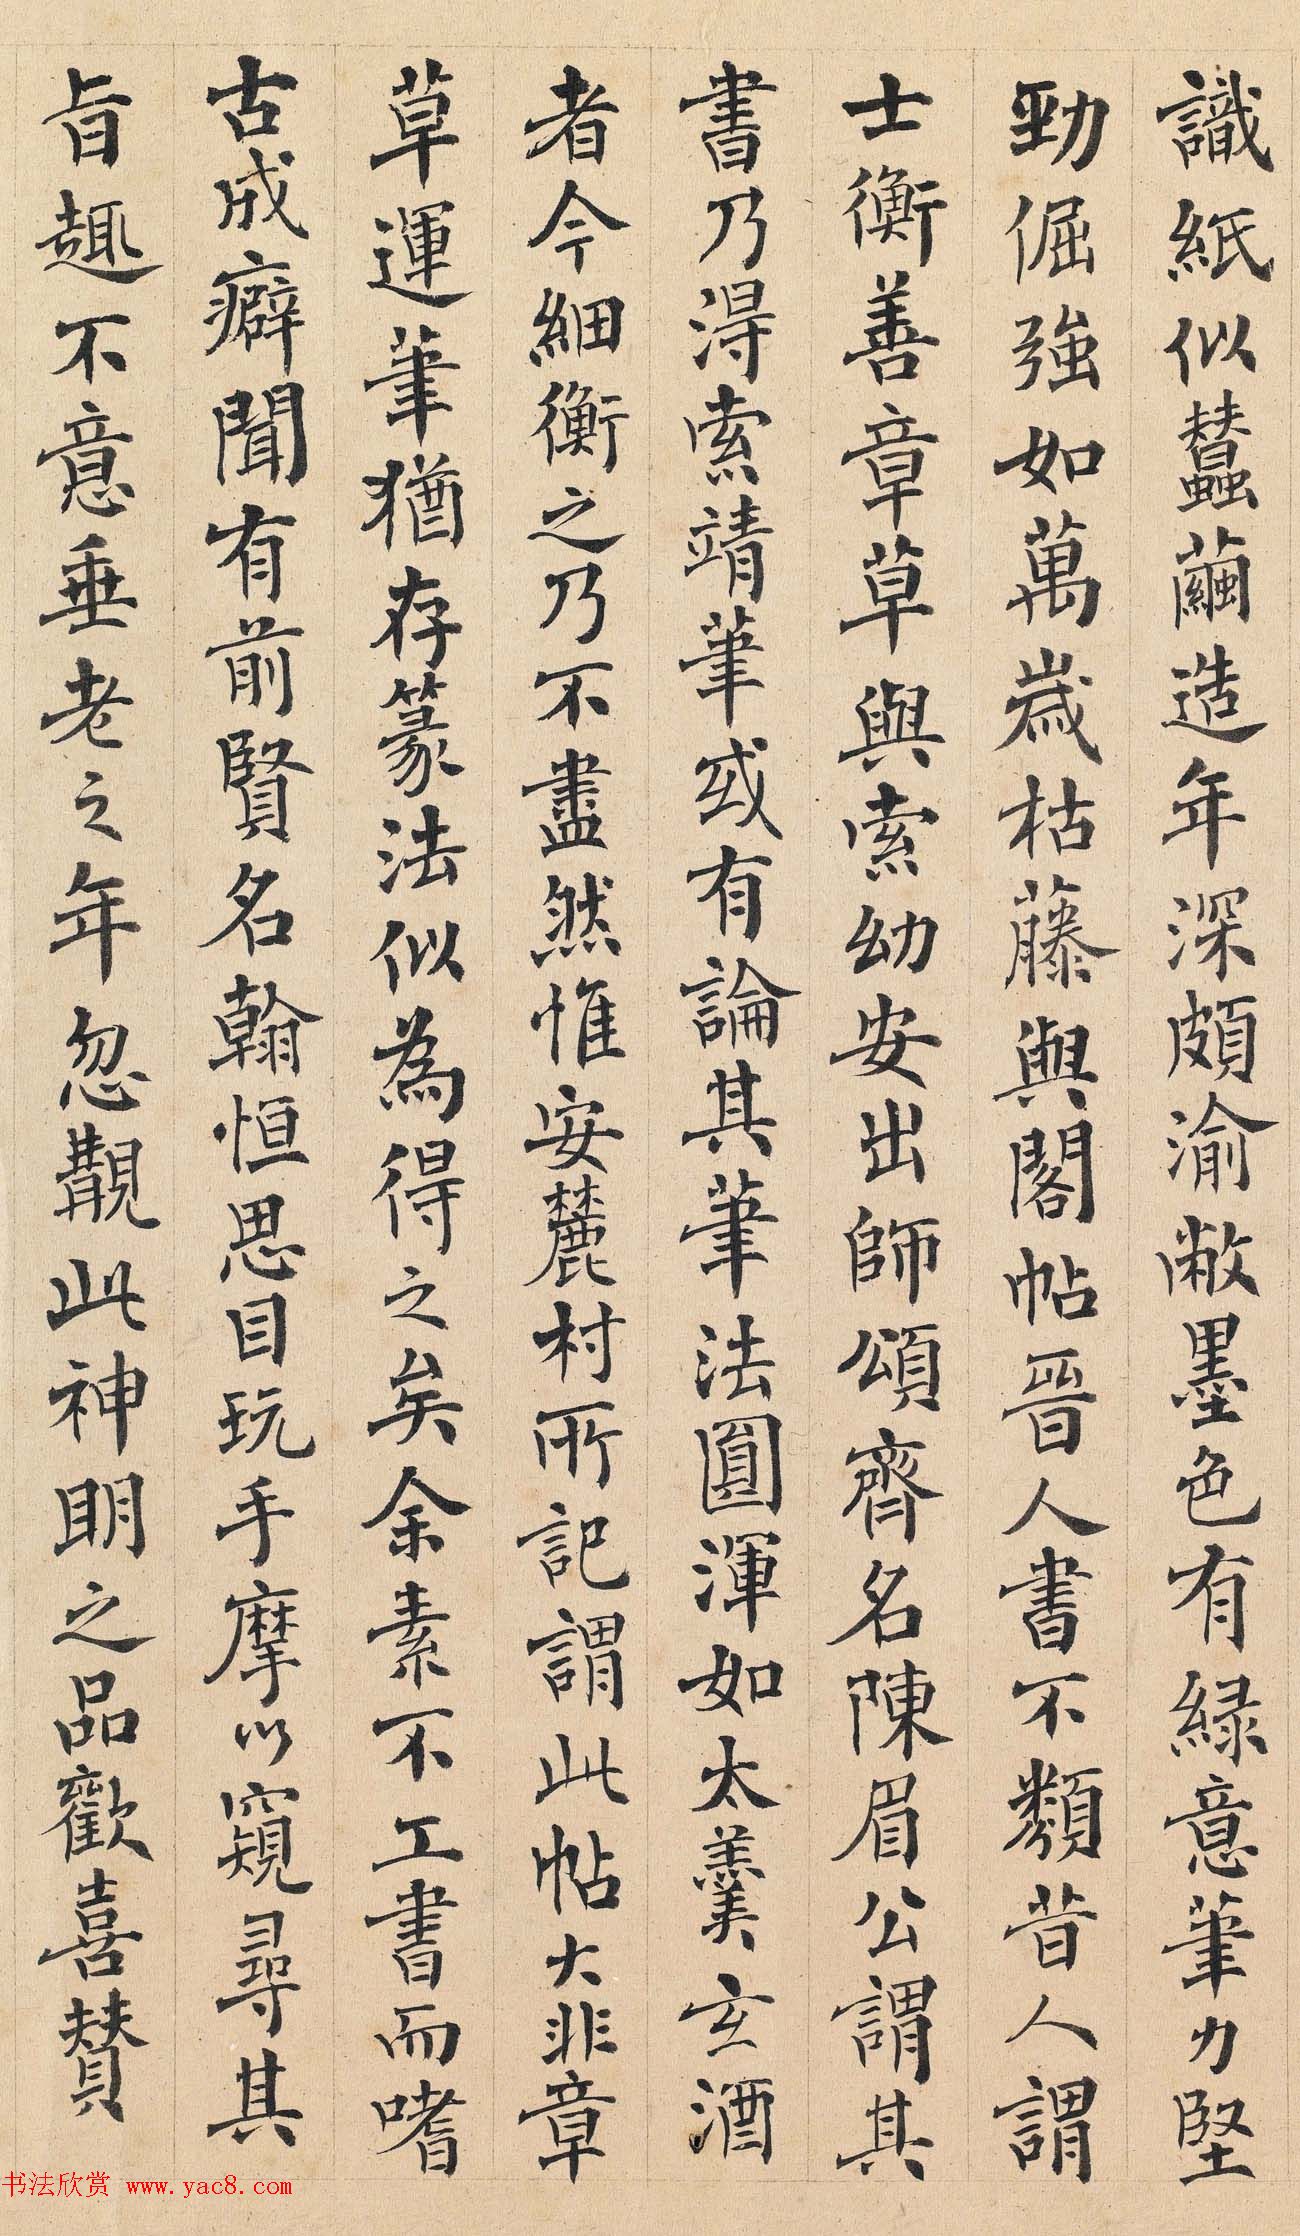 識紙似蠶繭造年深頗渝敝墨色有緑意筆力堅
勁倔強如萬歲枯藤與閣帖晉人書不類昔人謂
士衡善章草與索幼安出師頌齊名陳眉公謂其
書乃得索靖筆或有論其筆法圓渾如太羹玄酒
者今細衡之乃不盡然惟安麓村所記謂此帖大非章
草運筆猶存篆法似為得之矣余素不工書而嗜
古成癖聞有前賢名翰恒思目玩手摩以窺尋其
旨趣不意垂老之年忽覩此神明之品歡喜贊
书法欣赏 www.yac8.com